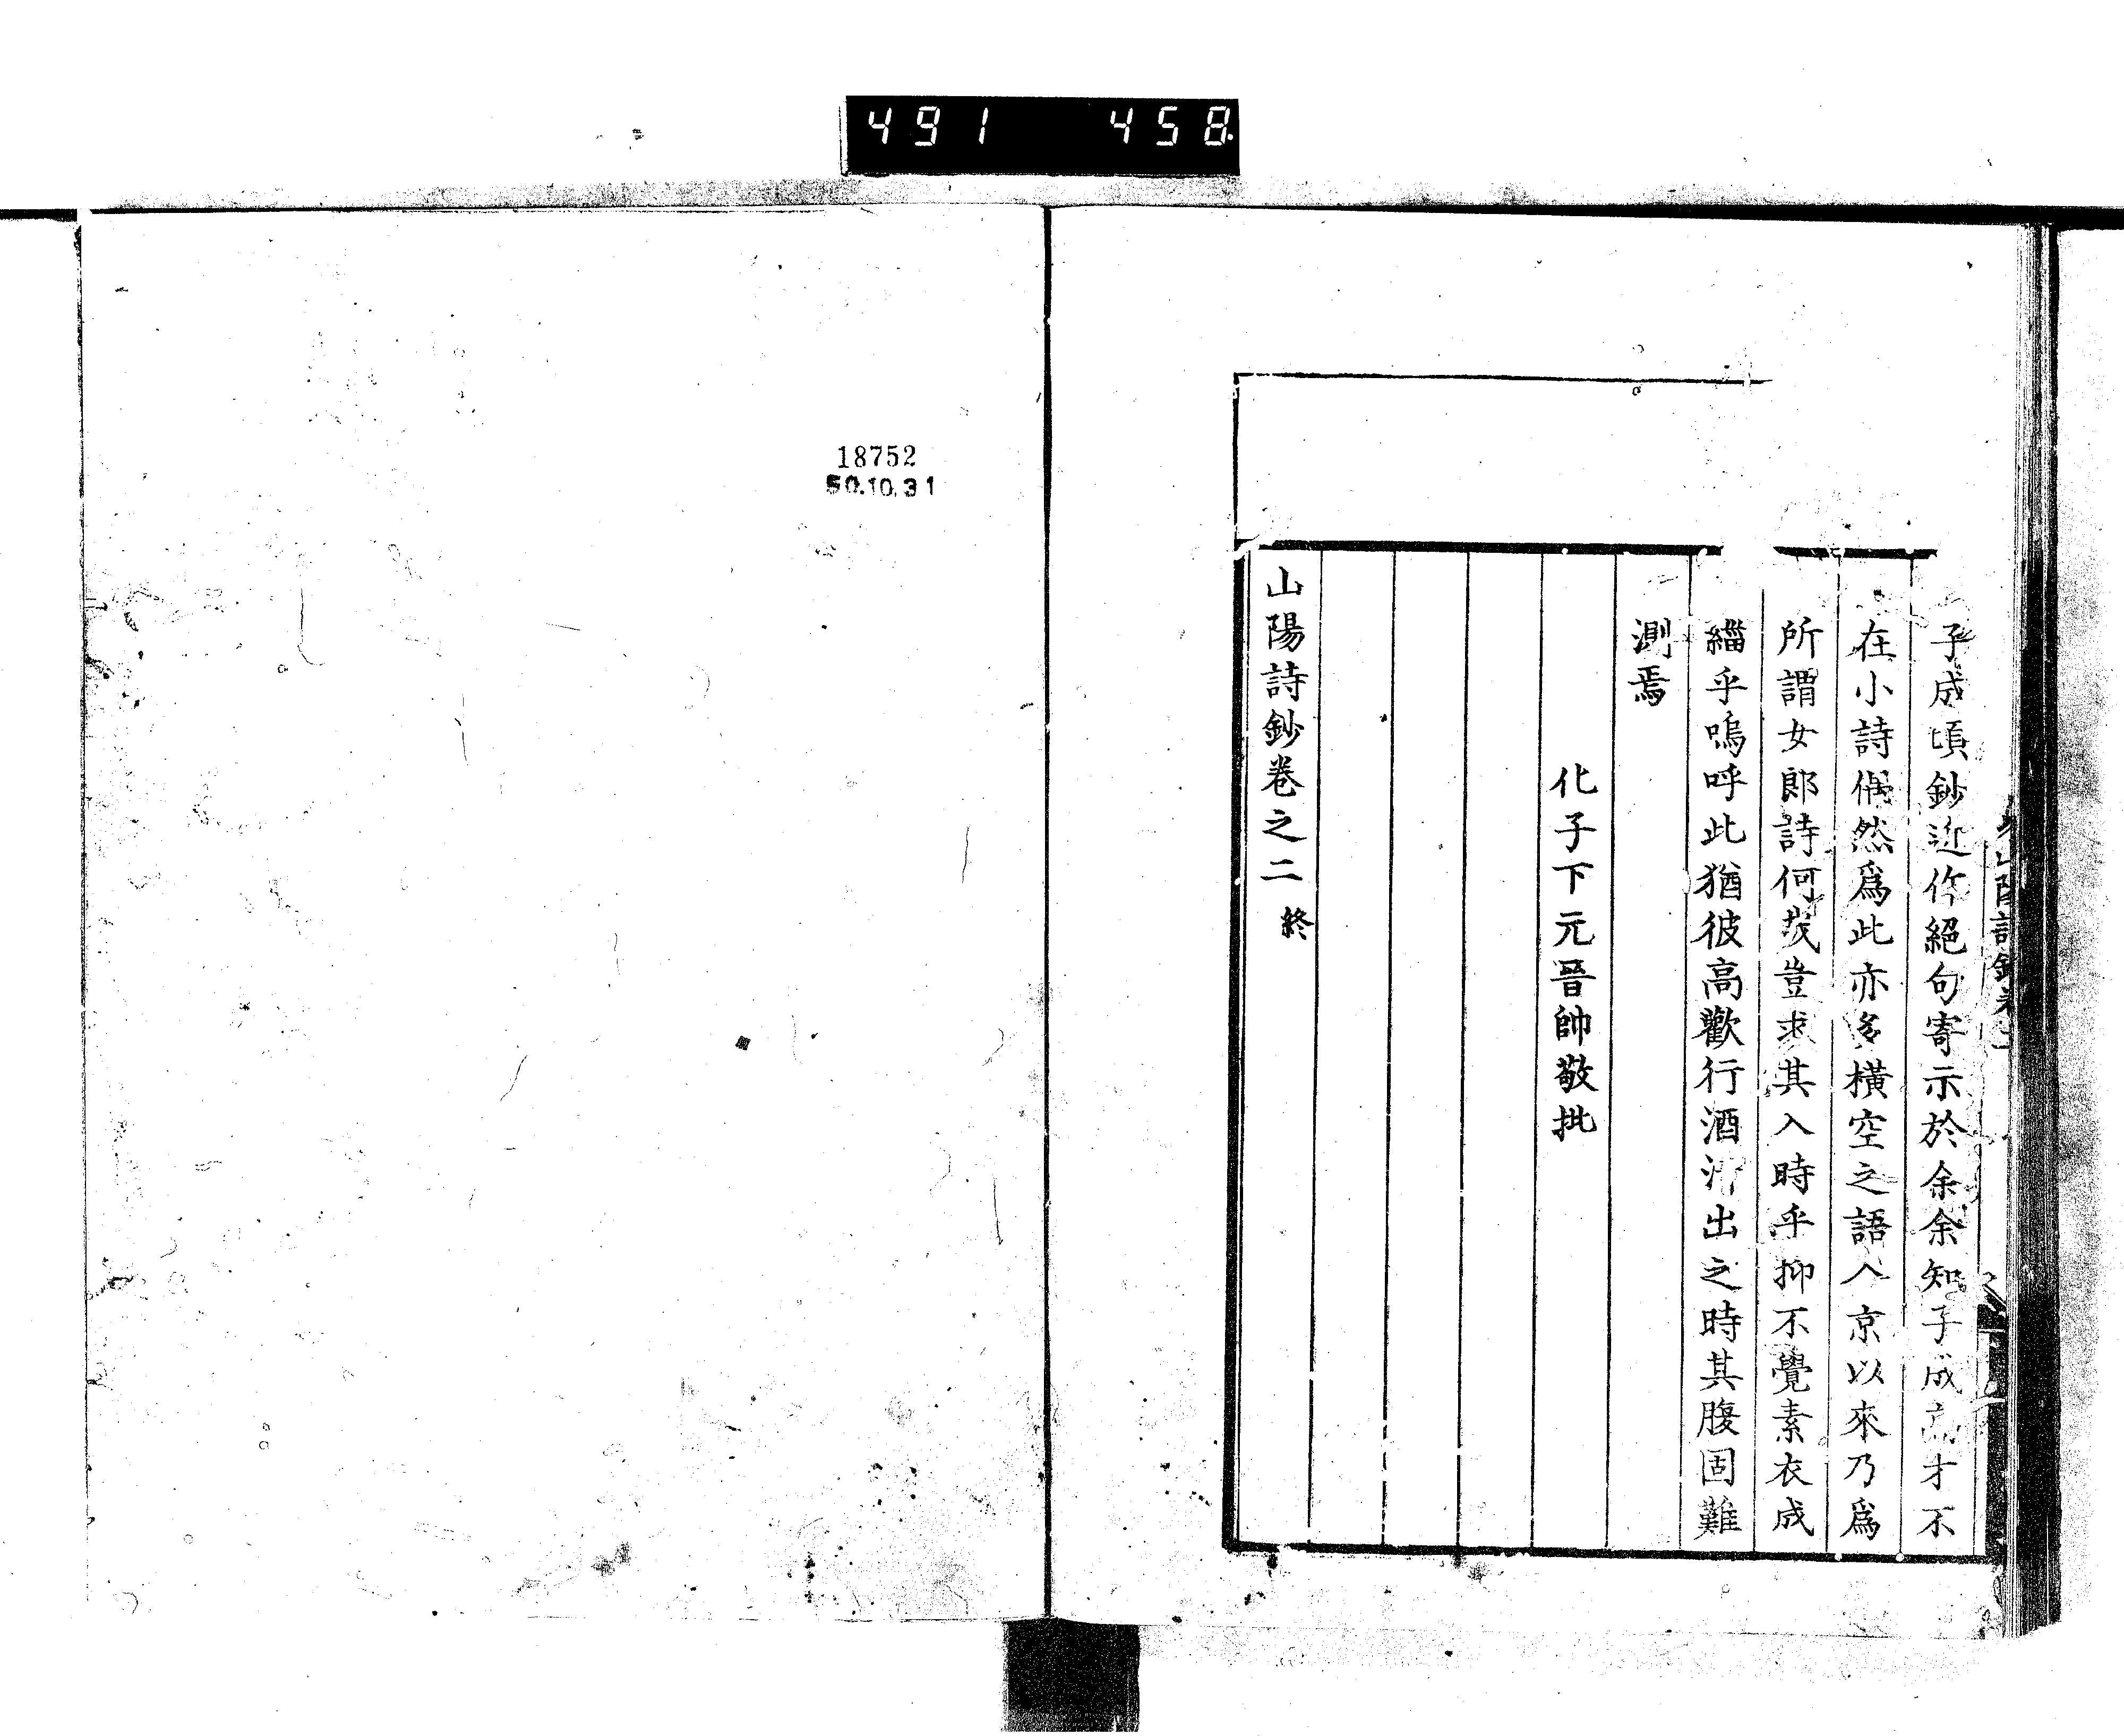 491 458
子成頃鈔近作絕句寄示於余余知子成高才不
在小詩偶然爲此亦多橫空之語入京以來乃爲
所謂女郎詩何哉豈求其入時乎抑不覺素衣成
緇乎嗚呼此猶彼高歡行酒汗出之時其腹固難
測焉
化子下元晉帥敬批
山陽詩鈔卷之二 終
18752
50.10.31